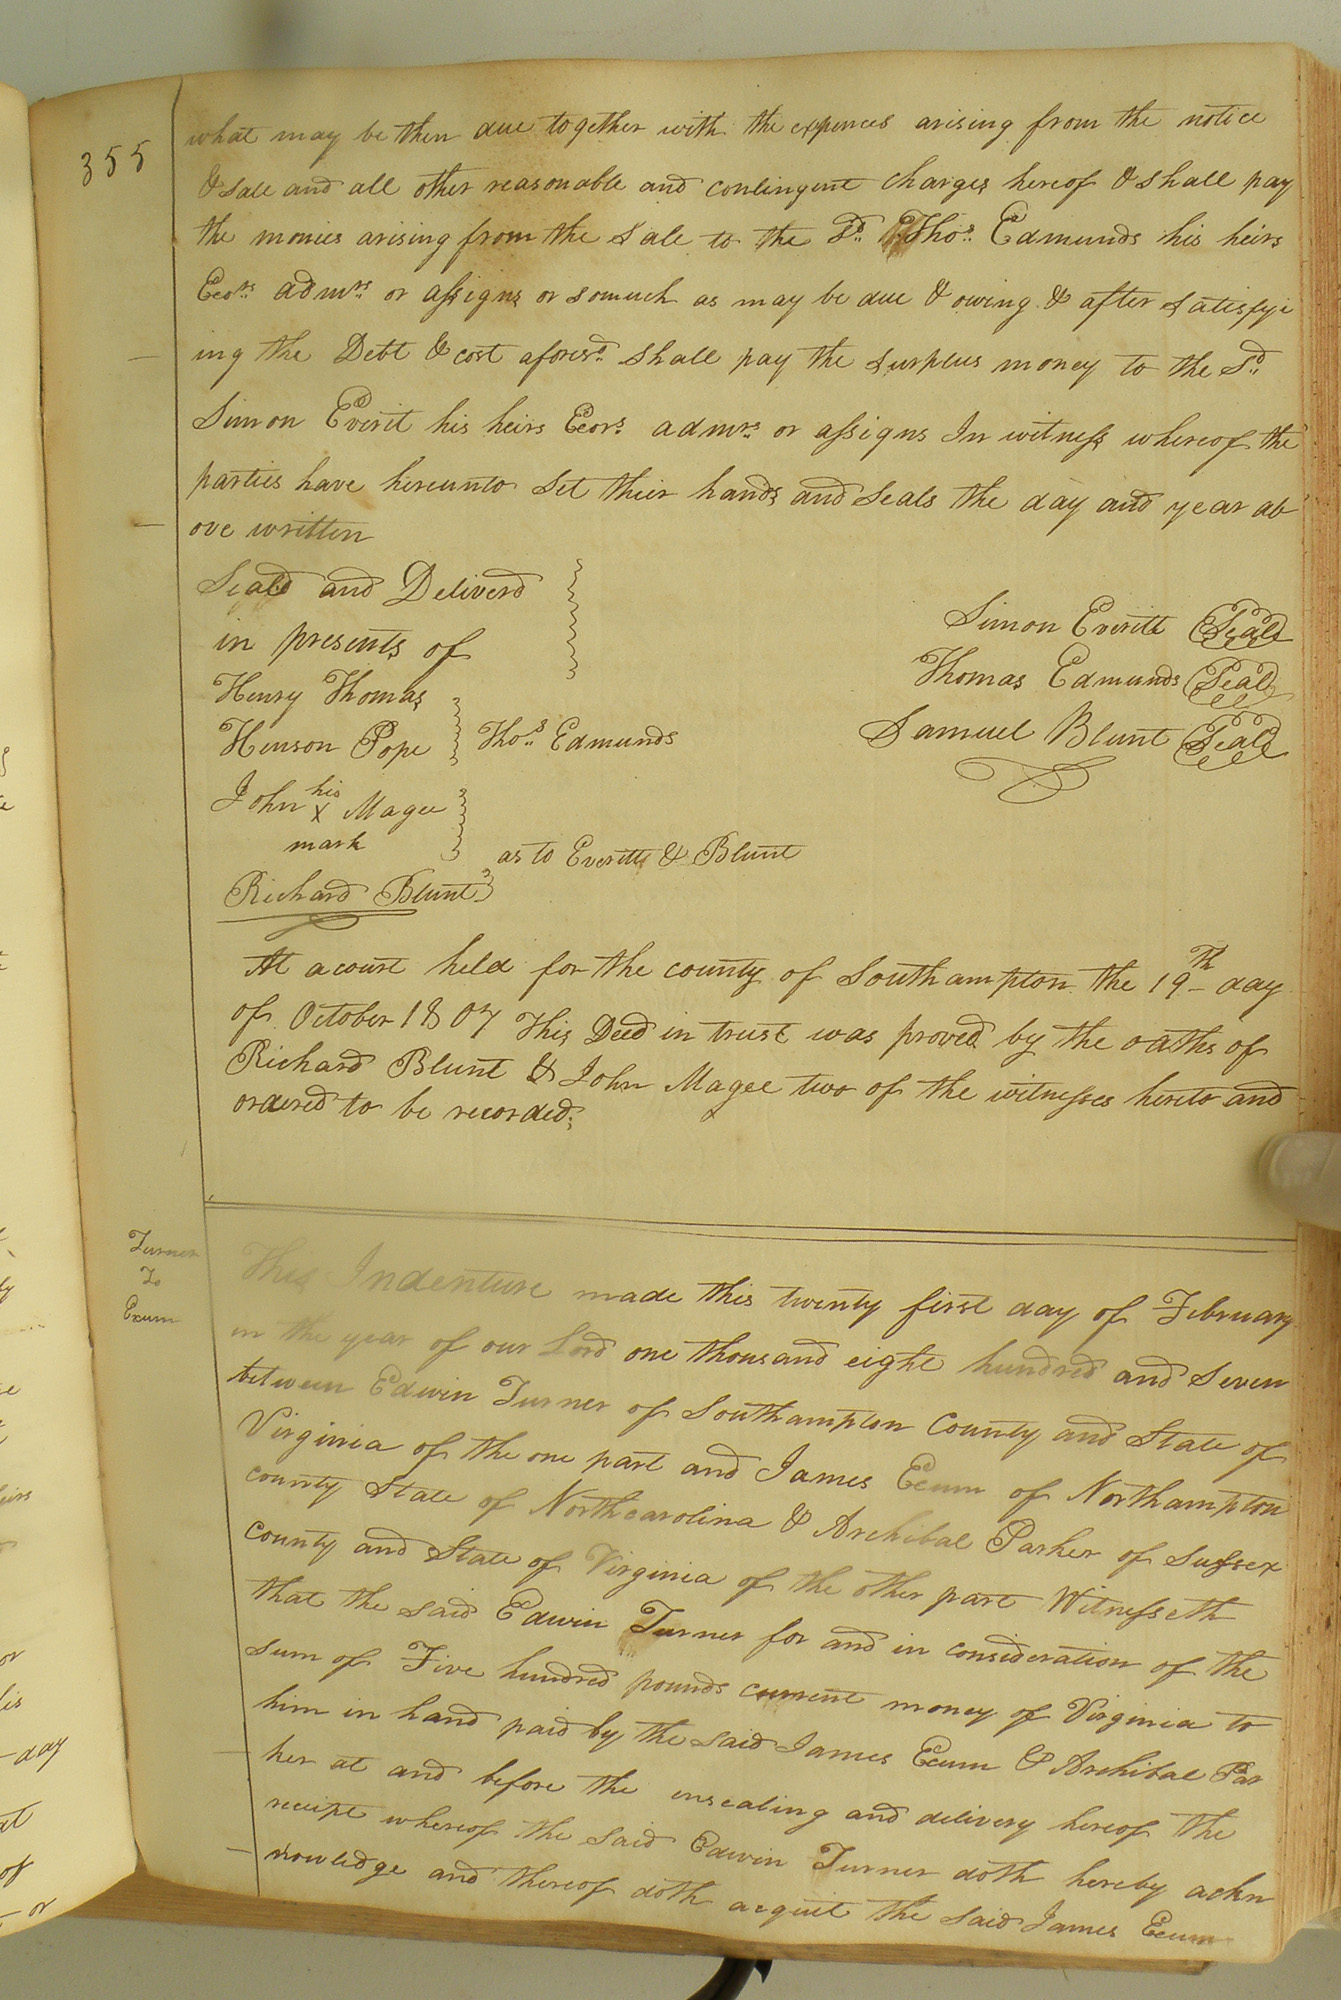 355
what may be then due together with the expences arising from the notice
& sale and all other reasonable and contingent charges hereof & shall pay
the monies arising from the Sale to the Sd. Thos. Edmunds his heirs
Ecors. admrs. or assigns or somuch as may be due & owing & after satisfyi
ing the Debt & cost aforesd. shall pay the surplus money to the Sd.
Simon Everit his heirs Ecors. admrs. or assigns In witness whereof the
parties have hereunto set their hands and seals the day and year ab
ove written
Seald and Deliverd
in presents of
Simon Everitt Seal
Thomas Edmunds Seal
Samuel Blunt Seal
Henry Thomas
Henson Pope
Thos. Edmunds
John his X mark Magee
as to Everitt & Blunt
Richard Blunt
At a court held for the county of Southampton the 19th day
of October 1807 This Deed in trust was proved by the oaths of
Richard Blunt & John Magee two of the witnesses hereto and
ordered to be recorded;
Turner
To
Exum
This Indenture made this twenty first day of February
in the year of our Lord one thousand eight hundred and Seven
between Edwin Turner of Southampton County and State of
Virginia of the one part and James Ecum of Northampton
county State of Northcarolina & Archibal Parker of Sussex
County and State of Virginia of the other part Witnesseth
that the said Edwin Turner for and in consideration of the
sum of Five hundred pounds current money of Virginia to
him in hand paid by the said James Ecum & Archibal Par
ker at and before the ensealing and delivery hereof the
receipt whereof the said Edwin Turner doth hereby ackn
nowledge and thereof doth acquit the said James Ecum